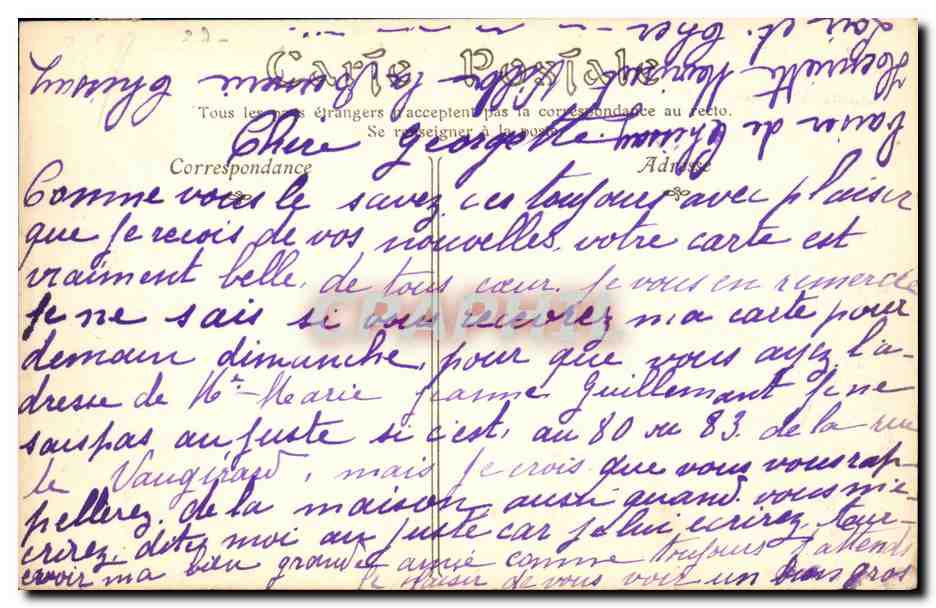 Carte Postale
Tous les pays étrangers n'acceptent pas la correspondance au recto.
Se renseigner à la poste.
Correspondance
Adresse
Chere Georgette
Comme vous le savez ces toujours avec plaisir
que je recois de vos nouvelles. votre carte est
vraiment belle, de tous cœur. je vous en remercie
Je ne sais si vous recevrez ma carte pour
demain dimanche, pour que vous ayez l'a-
dresse de Mr-Marie Jeanne Guillemant je ne
sais pas au juste si c'est, au 80 ou 83. de la rue
de Vaugirard, mais je crois que vous vous rap-
pellerez. de la maison, aussi quand vous m'e-
crirez, dites moi au juste car je lui ecrirez,
cevoir ma bien grande amie comme toujours j'attends
le plaisir de vous voir un bon gros
baiser de
Loir et. Cher